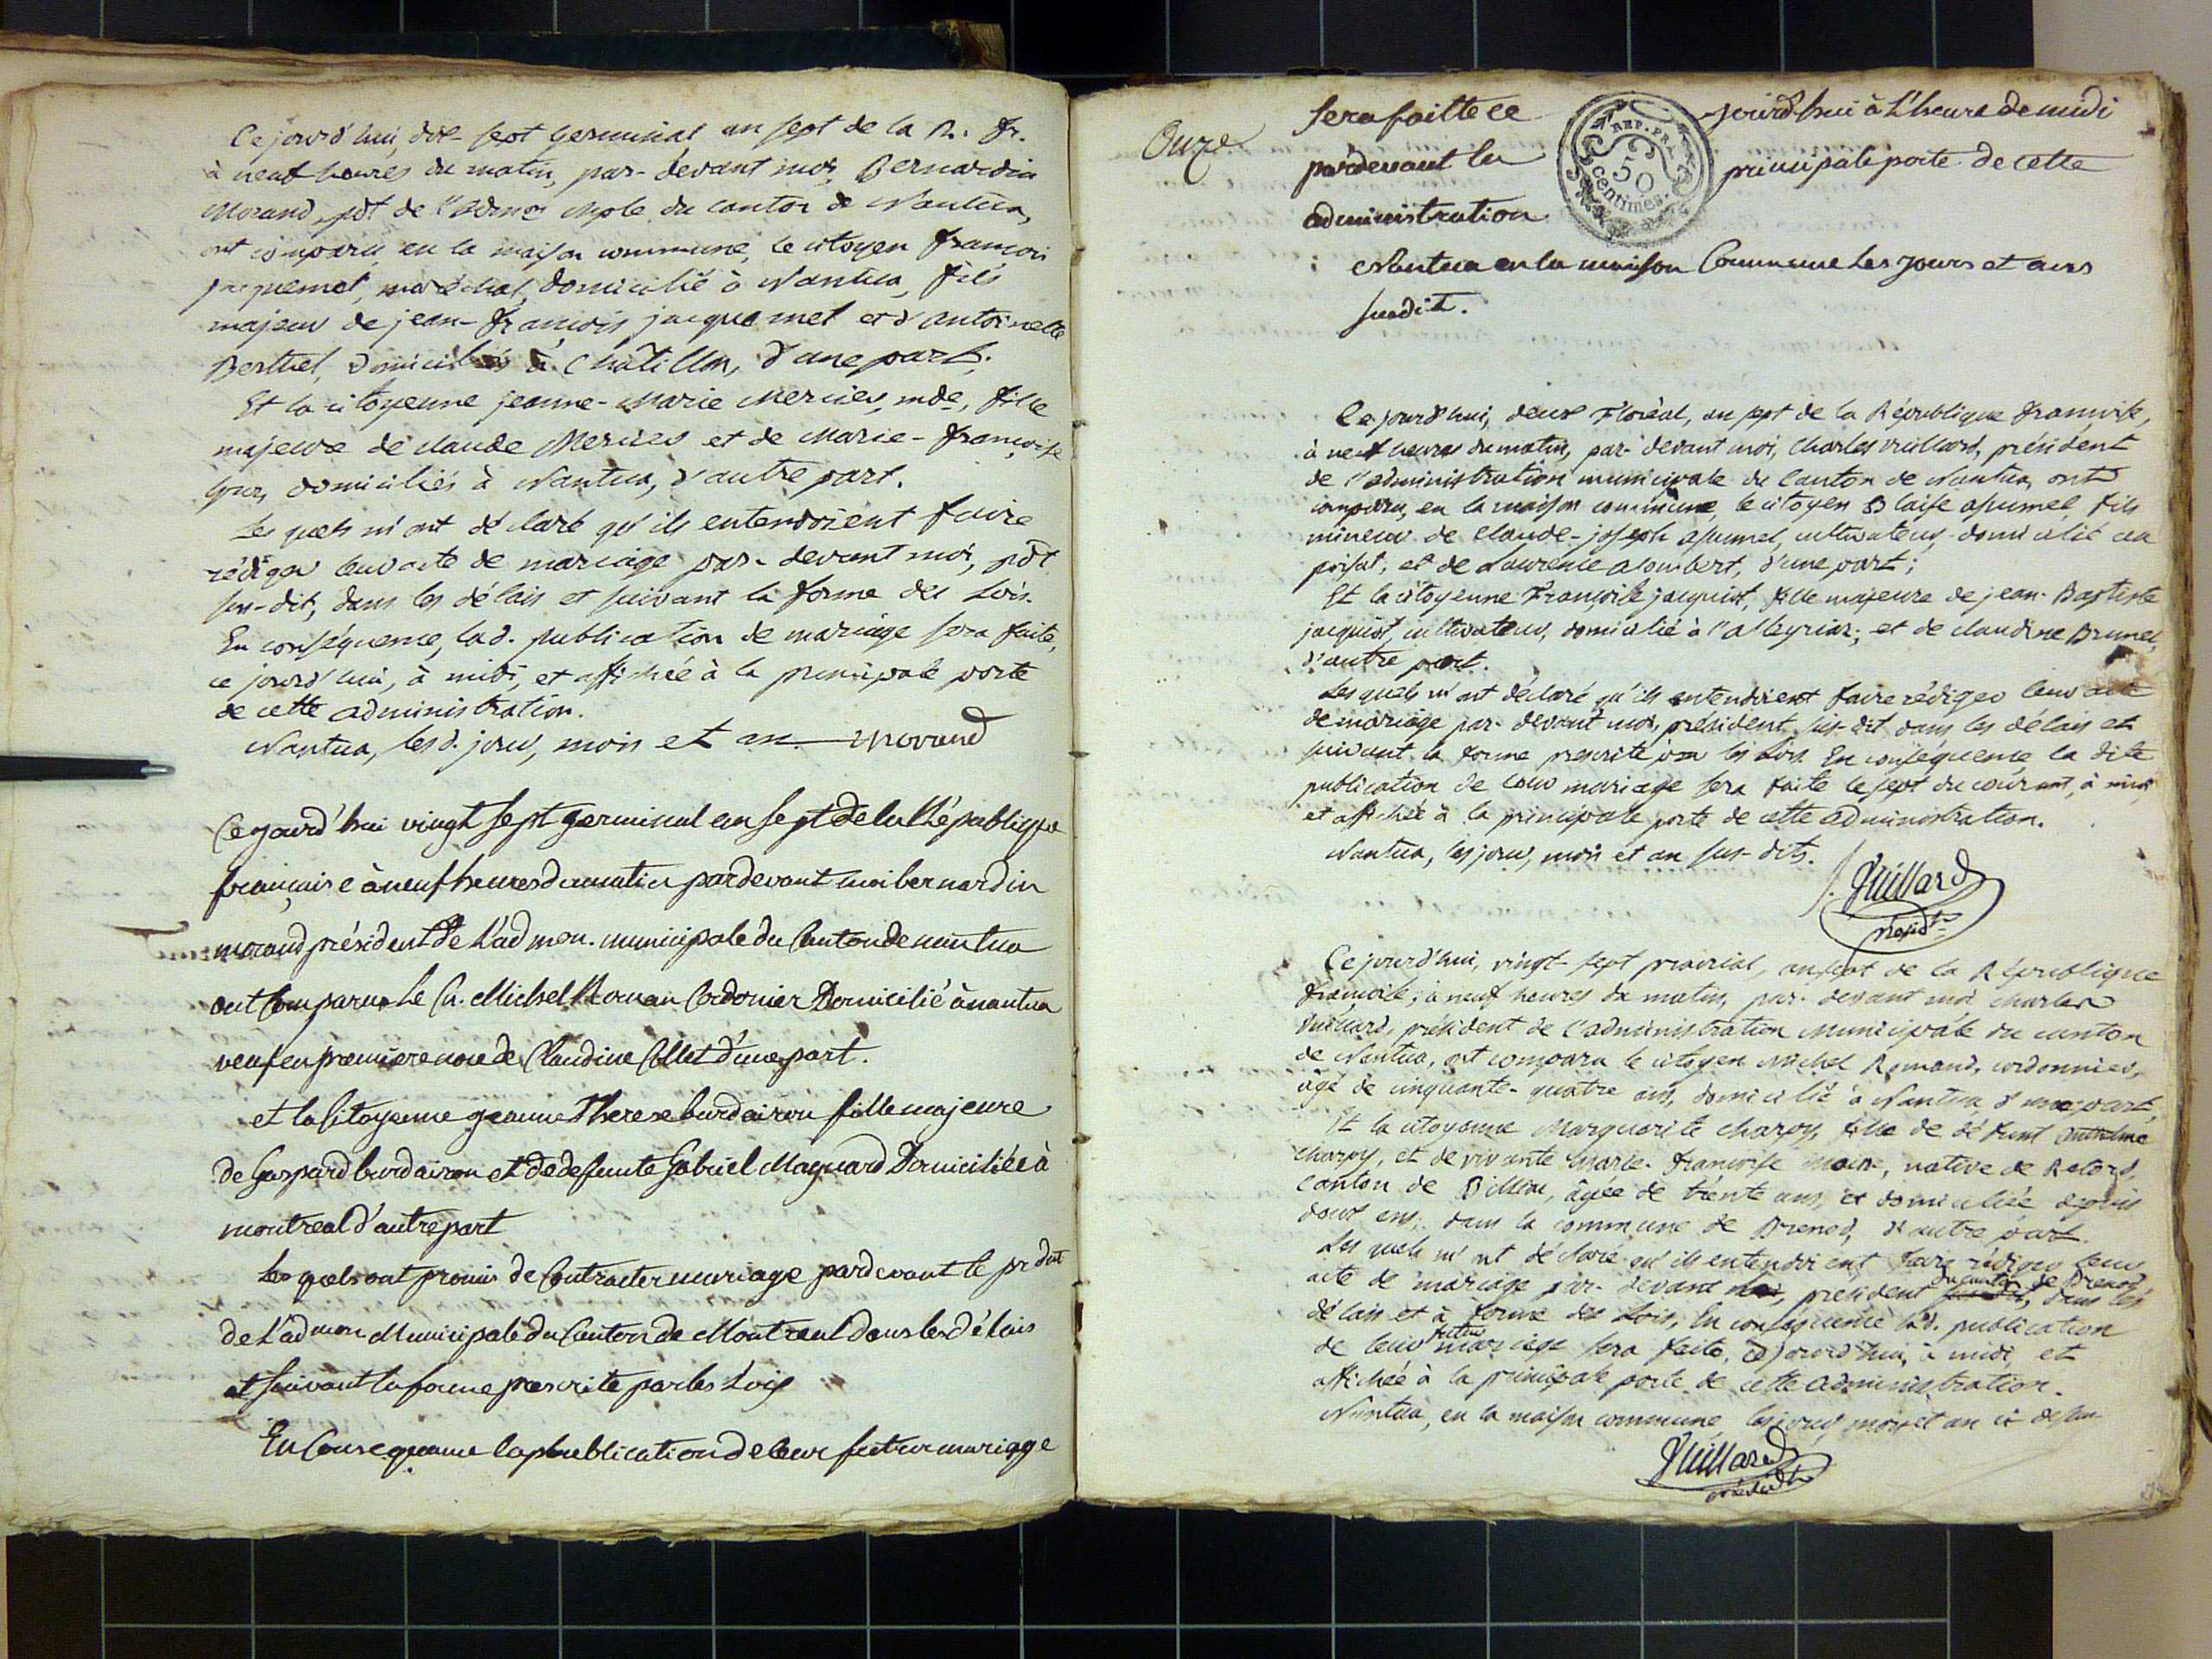 Ce jourd'hui, dix-sept germinal an sept de la R. fr.
à neuf heures du matin, par-devant moi, Bernardin
Morand, pdt de l'admon mple du canton de Nantua,
ont comparu, en la maison commune, le citoyen françois
jacquemet, maréchal, domicilié à Nantua, fils
majeur de jean-françois jacquemet et d'antoinette
Berthet, domiciliés à Chatillon, d'une part;
Et la citoyenne jeanne-Marie Mercier, mde, fille
majeure de claude Mercier et de Marie-françoise
domiciliés à Nantua, d'autre part.
Les quels m'ont déclaré qu'ils entendoient faire
rédiger leur acte de mariage par-devant moi, pdt
sus-dit, dans les délais et suivant la forme des Lois.
En conséquence, lad. publication de mariage sera faite,
ce jourd'hui, à midi, et affichée à la principale porte
de cette administration.
Nantua, les d. jour, mois et an. Morand
Ce jourd'hui vingt sept germinal an sept de la République
française à neuf heures du matin pardevant moi bernardin
morand président de L'admon. municipale du Canton de nantua
ont Comparus Le Cn. Michel Roman Cordonier Domicilié à nantua
veuf en premiere noce de Claudine Collet d'une part.
et la Citoyenne jeanne Therese burdairon fille majeure
de Gaspard burdairon et de defunte Gabriel Maquard Domiciliée à
montreal d'autre part
Les quels ont promis de Contracter mariage pardevant le prdnt
de L'admon Municipale du Canton de Montreal dans les délais
et suivant la forme prescrite par les Loix
En Consequance la publication de leur futur mariage
Onze
sera faitte ce jourd'hui à L'heure de midi
pardevant la principale porte de cette
administration
REP. FRA.
50
centimes
Nantua en la maison Commune Les jours et ans
susdit.
Ce jourd'hui, deux Floréal, an sept de la République françoise,
à neuf heures du matin, par-devant moi, Charles vuillard, président
de l'administration municipale du Canton de Nantua, ont
comparu, en la maison commune, le citoyen Blaise apumel, fils
mineur de Claude-joseph apumel, cultivateur, domicilié au
poisat, et de Laurence alombert, d'une part;
Et la citoyenne Françoise jacquiot, fille majeure de jean-Baptiste
jacquiot, cultivateur, domicilié à l'alleyriat; et de claudine Brunet,
d'autre part.
Les quels m'ont déclaré qu'ils entendoient faire rédiger leur acte
de mariage par-devant moi, président sus-dit dans les délais et
suivant la forme prescrite par les Lois. En conséquence, la dite
publication de leur mariage sera faite le sept du courant, à midi,
et affichée à la principale porte de cette administration.
Nantua, les jour, mois et an sus-dits.
Vuillard
présidt
Ce jourd'hui, vingt-sept prairial, an sept de la République
françoise, à neuf heures du matin, par-devant moi charles
vuillard, président de l'administration Municipale du canton
de Nantua, ont comparu le citoyen Michel Romand, cordonnier,
âgé de cinquante-quatre ans, domicilié à Nantua, d'une part,
Et la citoyenne Marguerite charpy, fille de défunt anthelme
charpy, et de vivante Marie-françoise native de Retord,
canton de Billiat, âgée de trente ans, et domiciliée depuis
doux ans, dans la commune de Brenod, d'autre part.
Les quels m'ont déclaré qu'ils entendoient faire rédiger leur
acte de mariage par-devant moi, président sus-dit, du canton de Brenod dans les
délais et à forme des Lois. En conséquence lad. publication
de leur futur mariage sera faite, ce jourd'hui, à midi, et
affichée à la principale porte de cette administration.
Nantua, en la maison commune, les jour, mois et an ci-dessus
Vuillard
présidt